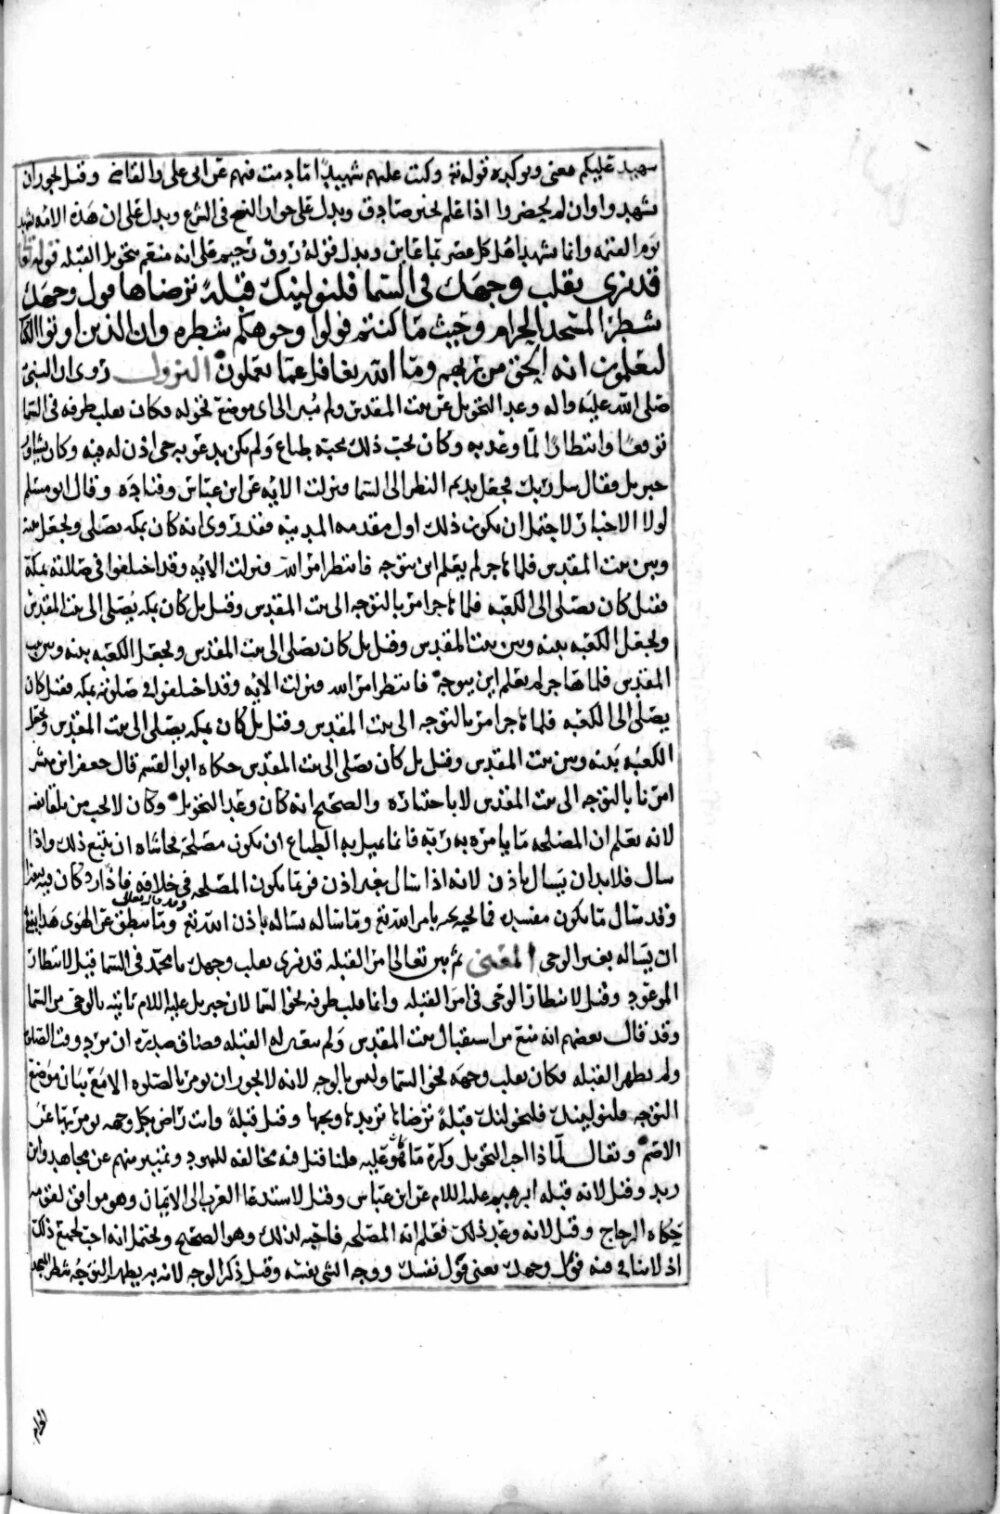 شهيد عليكم معنى وتوكيده قوله تع وكنت عليهم شهيدا ما دمت فيهم عن ابى على والقاضي وقيل يجوز ان
يشهدوا وان لم يحضروا اذا علم بخبر صادق ويدل على جواز النسخ فى الشرع ويدل على ان هذه الامه تشهد
يوم القيمه وانما يشهد اهل كل عصر بما عاين ويدل قوله رؤف رحيم على انه منعم بتحويل القبله قوله تعا
قد نرى تقلب وجهك فى السما فلنولينك قبلة ترضاها فول وجهك
شطر المسجد الحرام وحيث ما كنتم فولوا وجوهكم شطره وان الذين اوتوا الكتا
ليعلمون انه الحق من ربهم وما الله بغافل عما يعملون النزول روى ان النبى
صلى الله عليه واله وعد التحويل عن بيت المقدس ولم يبين الى اى موضع تحوله وكان يقلب طرفه فى السما
توقعا وانتظارا لما وعد به وكان يحب ذلك محبه طباع ولم يكن يدعو به حتى اذن له فيه وكان يشاور
جبريل فقال سل ربك فجعل يديم النظر الى السما فنزلت الايه عن ابن عباس وقتاده وقال ابو مسلم
لولا الاخبار لاحتمل ان يكون ذلك اول مقدمه المدينه فقد روى انه كان بمكه يصلى ويجعل بينه
وبين بيت المقدس فلما هاجر لم يعلم اين يتوجه فانتظر امر الله فنزلت الايه وقد اختلفوا فى صلاته بمكة
فقيل كان يصلى الى الكعبه فلما هاجر امر بالتوجه الى بيت المقدس وقيل بل كان بمكه يصلى الى بيت المقدس
ويجعل الكعبه بينه وبين بيت المقدس وقيل بل كان يصلى الى بيت المقدس ويجعل الكعبه بينه وبين بيت
المقدس فلما هاجر لم يعلم اين يتوجه فانتظر امر الله فنزلت الايه وقد اختلفوا فى صلوته بمكه فقيل كان
يصلى الى الكعبه فلما هاجر امر بالتوجه الى بيت المقدس وقيل بل كان بمكه يصلى الى بيت المقدس ويجعل
الكعبه بينه وبين بيت المقدس وقيل بل كان يصلى الى بيت المقدس حكاه ابو القسم قال جعفر ابن مبشر
امرنا بالتوجه الى بيت المقدس لا باختياره والصحيح انه كان وعد التحويل وكان لا يحب من تلقا نفسه
لانه يعلم ان المصلحه ما يامره به ربه فانما يميل به الطباع ان يكون مصلحة فحاشاه ان يتبع ذلك واذا
سال فلا بد ان يسال باذن لانه اذا سال بغير اذن فربما يكون المصلحه فى خلافه فاذا رد كان فيه
وقد سال ما يكون مفسده فالمحبه بامر الله تع وما ساله ساله باذن الله تع وقد قال تعالى وما ينطق عن الهوى هذا يمنع
ان يساله بغير الوحى المعنى ثم بين تعالى امر القبله قد نرى تقلب وجهك يا محمد فى السما قيل لانتظار
الموعود وقيل لانتظار الوحى فى امر القبله وانما قلب طرفه نحو السما لان جبريل عليه السلام ياتيه بالوحى من السما
وقد قال بعضهم انه منع من استقبال بيت المقدس ولم يتعين له القبله فضاق صدره ان يرد وقت الصلوة
ولم يظهر القبله فكان يقلب وجهه نحو السما وليس بالوجه لانه لا يجوز ان يومر بالصلوه الا مع بيان موضع
التوجه فلنولينك فلنحولنك قبلة ترضاها تريدها وتحبها وقيل قبلة وانت راض بكل وجهه تومر بها عن
الاصم ويقال لماذا احب التحويل وكره ما كان هو عليه قلنا قيل فيه مخالفه لليهود وتمييز منهم عن مجاهد وابن
زيد وقيل لانه قبله ابرهيم عليه السلام عن ابن عباس وقيل لاستدعا العرب الى الايمان وهو موافق لقومه
حكاه الزجاج وقيل لانه وعد ذلك فعلم انه المصلحه فاحبه لذلك وهو الصحيح ويحتمل انه احب لجميع ذلك
اذ لا تنافى فيه فول وجهك يعنى حول نفسك ووجه الشى نفسه وقيل ذكر الوجه لانه به يظهر التوجه شطر المسجد
الحرام